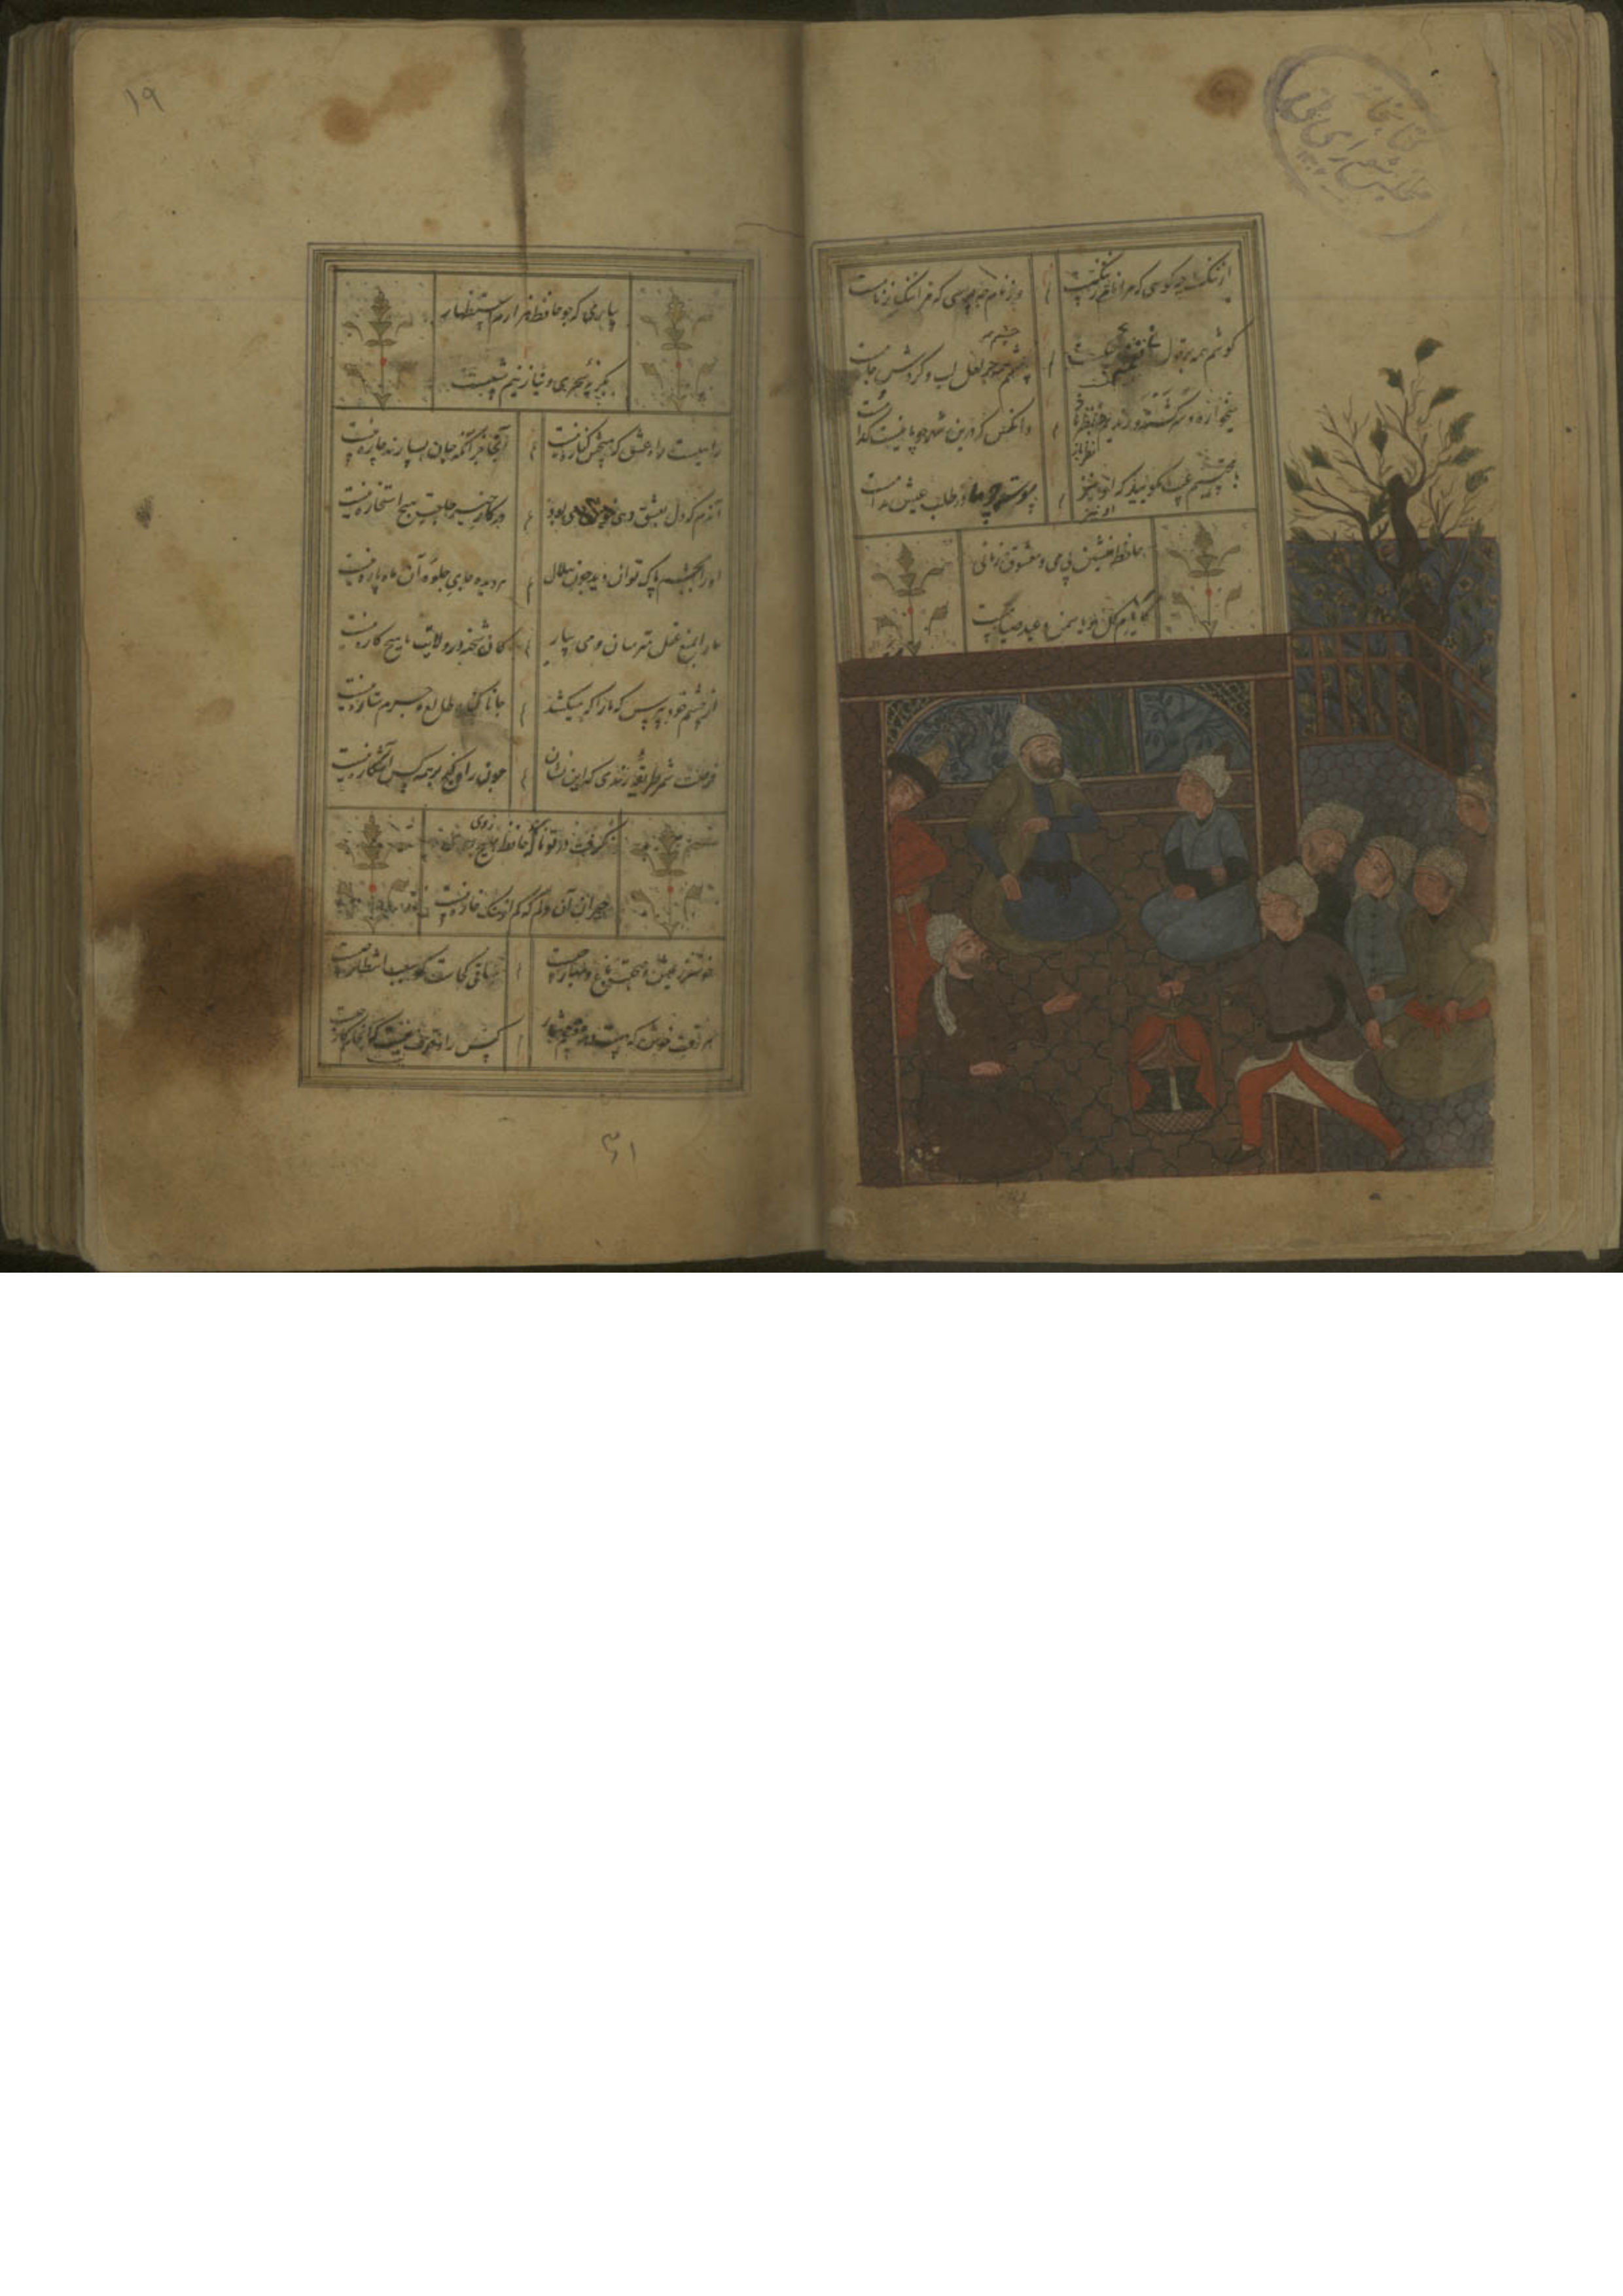 کتابخانه
مجلس شورای ملی
از ننگ چه کوسی که مرا نام ز ننگست
وز نام چه پرسی که مرا ننگ ز نامست
گوشم همه بر قول
چشمم همه بر لعل لب و گردش جامست
میخواره و سرگشته و رندیم و نظرباز
وانکس که درین شهر چو ما نیست کدامست
با محتسبم عیب مگویید که او نیز
پیوسته چو ما در طلب عیش مدامست
حافظ منشین بی می و معشوق زمانی
کایام گل و یاسمن و عید صیامست
۱۹
یاری که چو حافظ هزارم استظهار
بگریهٔ سحری و نیاز نیم شبیست
راهیست راه عشق که هیچش کناره نیست
آنجا جز آنکه جان بسپارند چاره نیست
آندم که دل بعشق دهی خوش دمی بود
در کار خیر حاجت هیچ استخاره نیست
او را بچشم پاک توان دید چون هلال
هر دیده جای جلوهٔ آن ماه پاره نیست
ما را بمنع عقل مترسان و می بیار
کان شحنه در ولایت ما هیچ کاره نیست
از چشم خود بپرس که ما را که میکشد
جانا گناه طالع و جرم ستاره نیست
فرصت شمر طریقهٔ رندی که این نشان
چون راه گنج بر همه کس آشکاره نیست
نگرفت در تو گریهٔ حافظ بهیچ روی
حیران آن دلم که کم از سنگ خاره نیست
خوشتر ز عیش و صحبت باغ و بهار چیست
ساقی کجاست گو سبب انتظار چیست
هر وقت خوش که دست دهد مغتنم شمار
کس را وقوف نیست که انجام کار چیست
۳۱